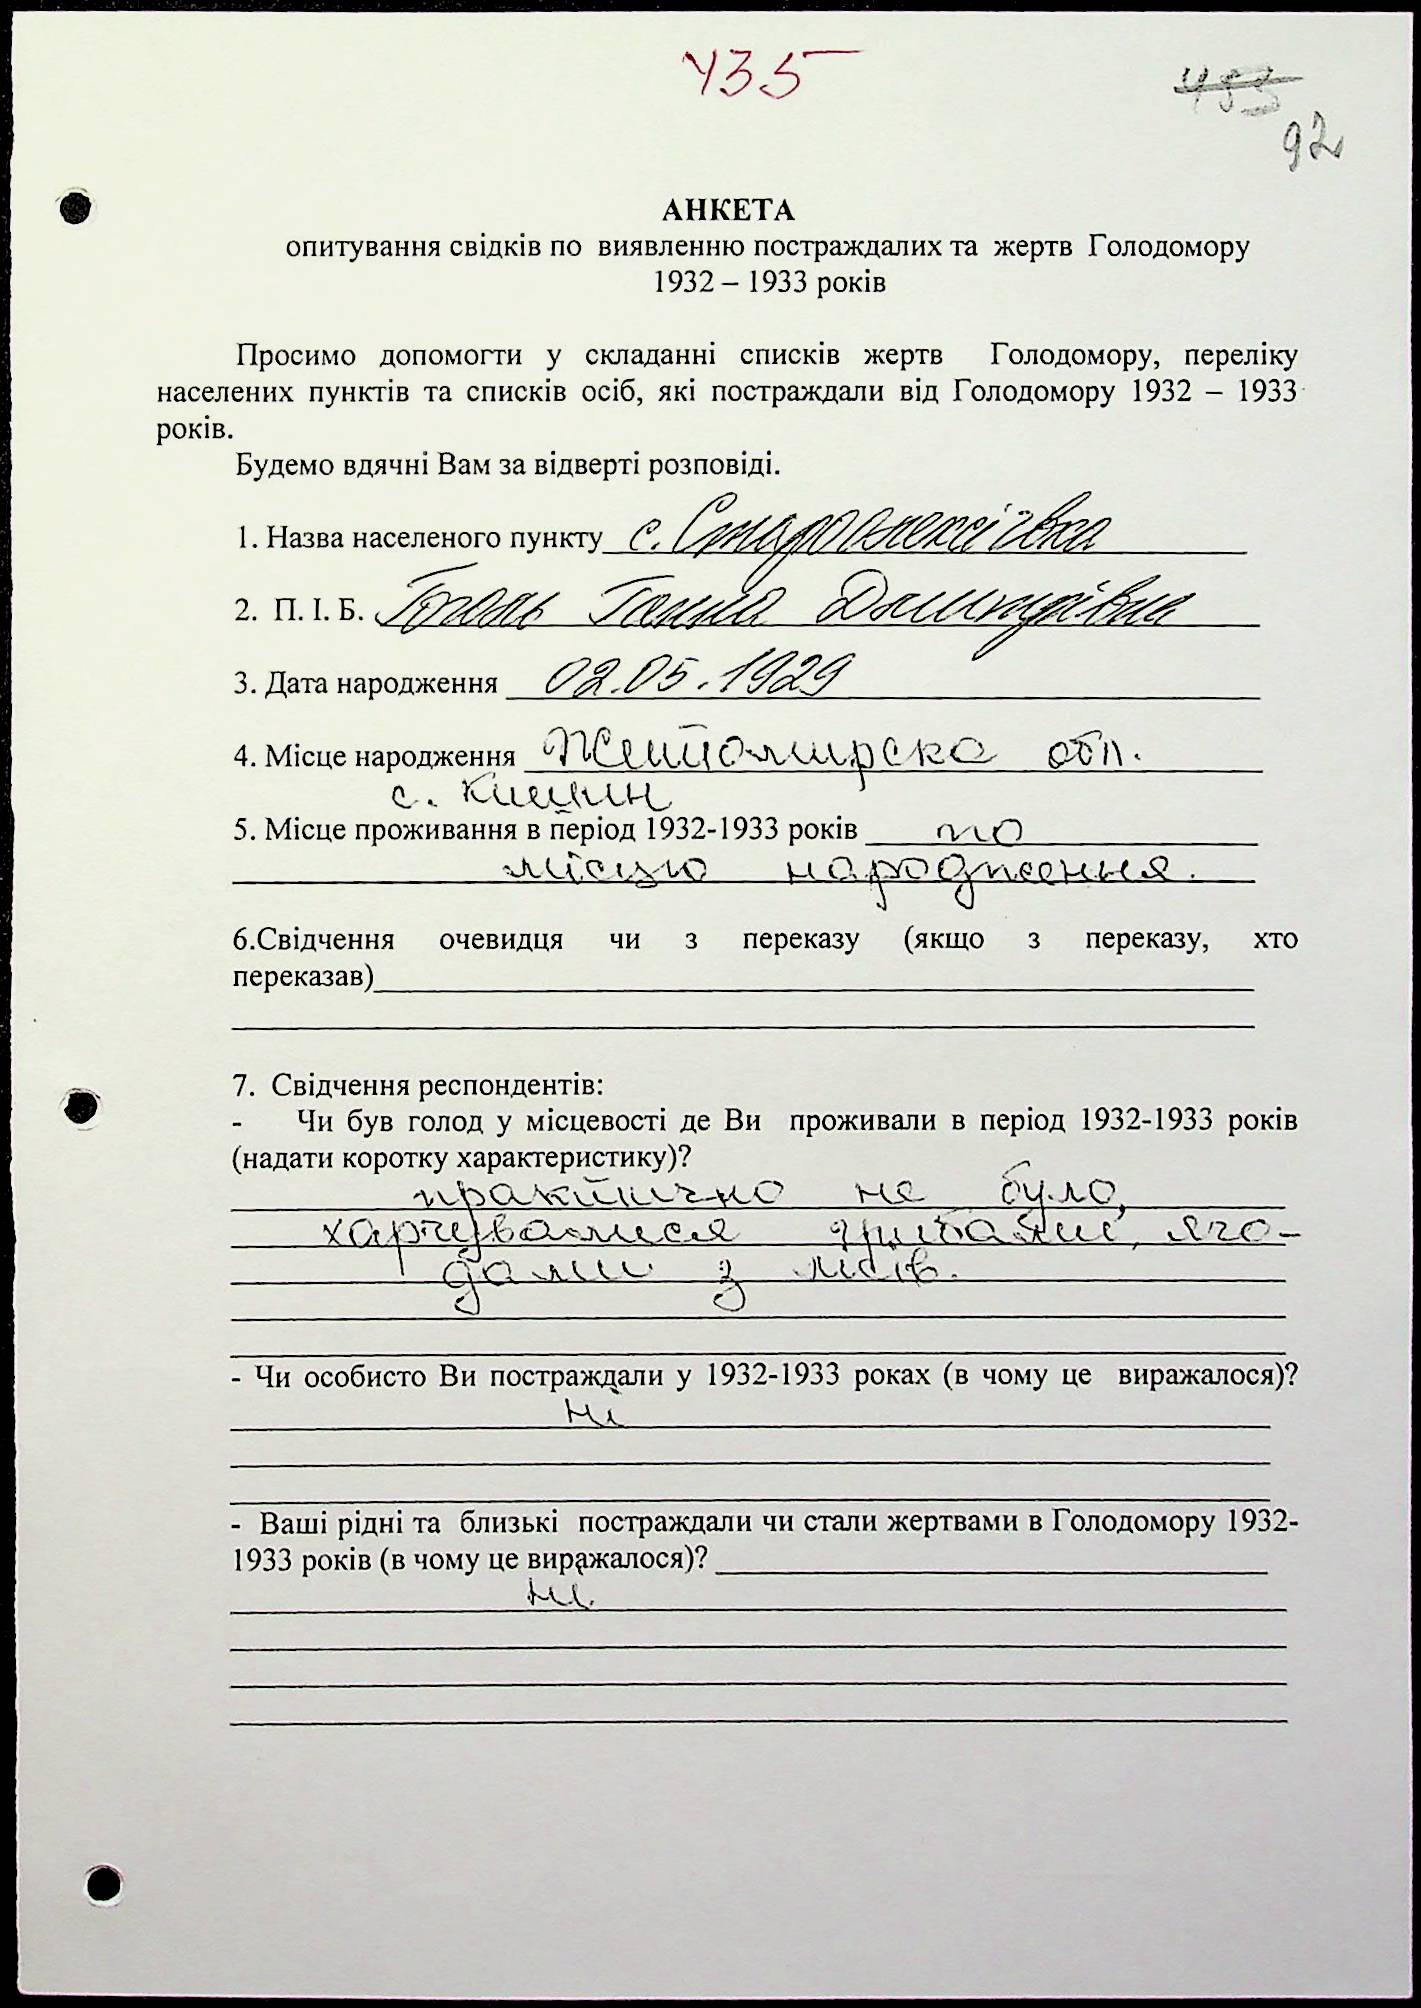 435
455
92
АНКЕТА
опитування свідків по виявленню постраждалих та жертв Голодомору
1932 – 1933 років
Просимо допомогти у складанні списків жертв Голодомору, переліку
населених пунктів та списків осіб, які постраждали від Голодомору 1932 – 1933
років.
Будемо вдячні Вам за відверті розповіді.
1. Назва населеного пункту с. Староолексіївка
2. П. І. Б. Ганна Дмитрівна
3. Дата народження 02.05.1929
4. Місце народження Житомирска обл.
с. Кишин
5. Місце проживання в період 1932-1933 років по
місцю народження.
6.Свідчення очевидця чи з переказу (якщо з переказу, хто
переказав)
7. Свідчення респондентів:
- Чи був голод у місцевості де Ви проживали в період 1932-1933 років
(надати коротку характеристику)?
практично не було,
харчувалися грибами, яго-
дами з лісів.
- Чи особисто Ви постраждали у 1932-1933 роках (в чому це виражалося)?
Ні
- Ваші рідні та близькі постраждали чи стали жертвами в Голодомору 1932-
1933 років (в чому це виражалося)?
Ні.